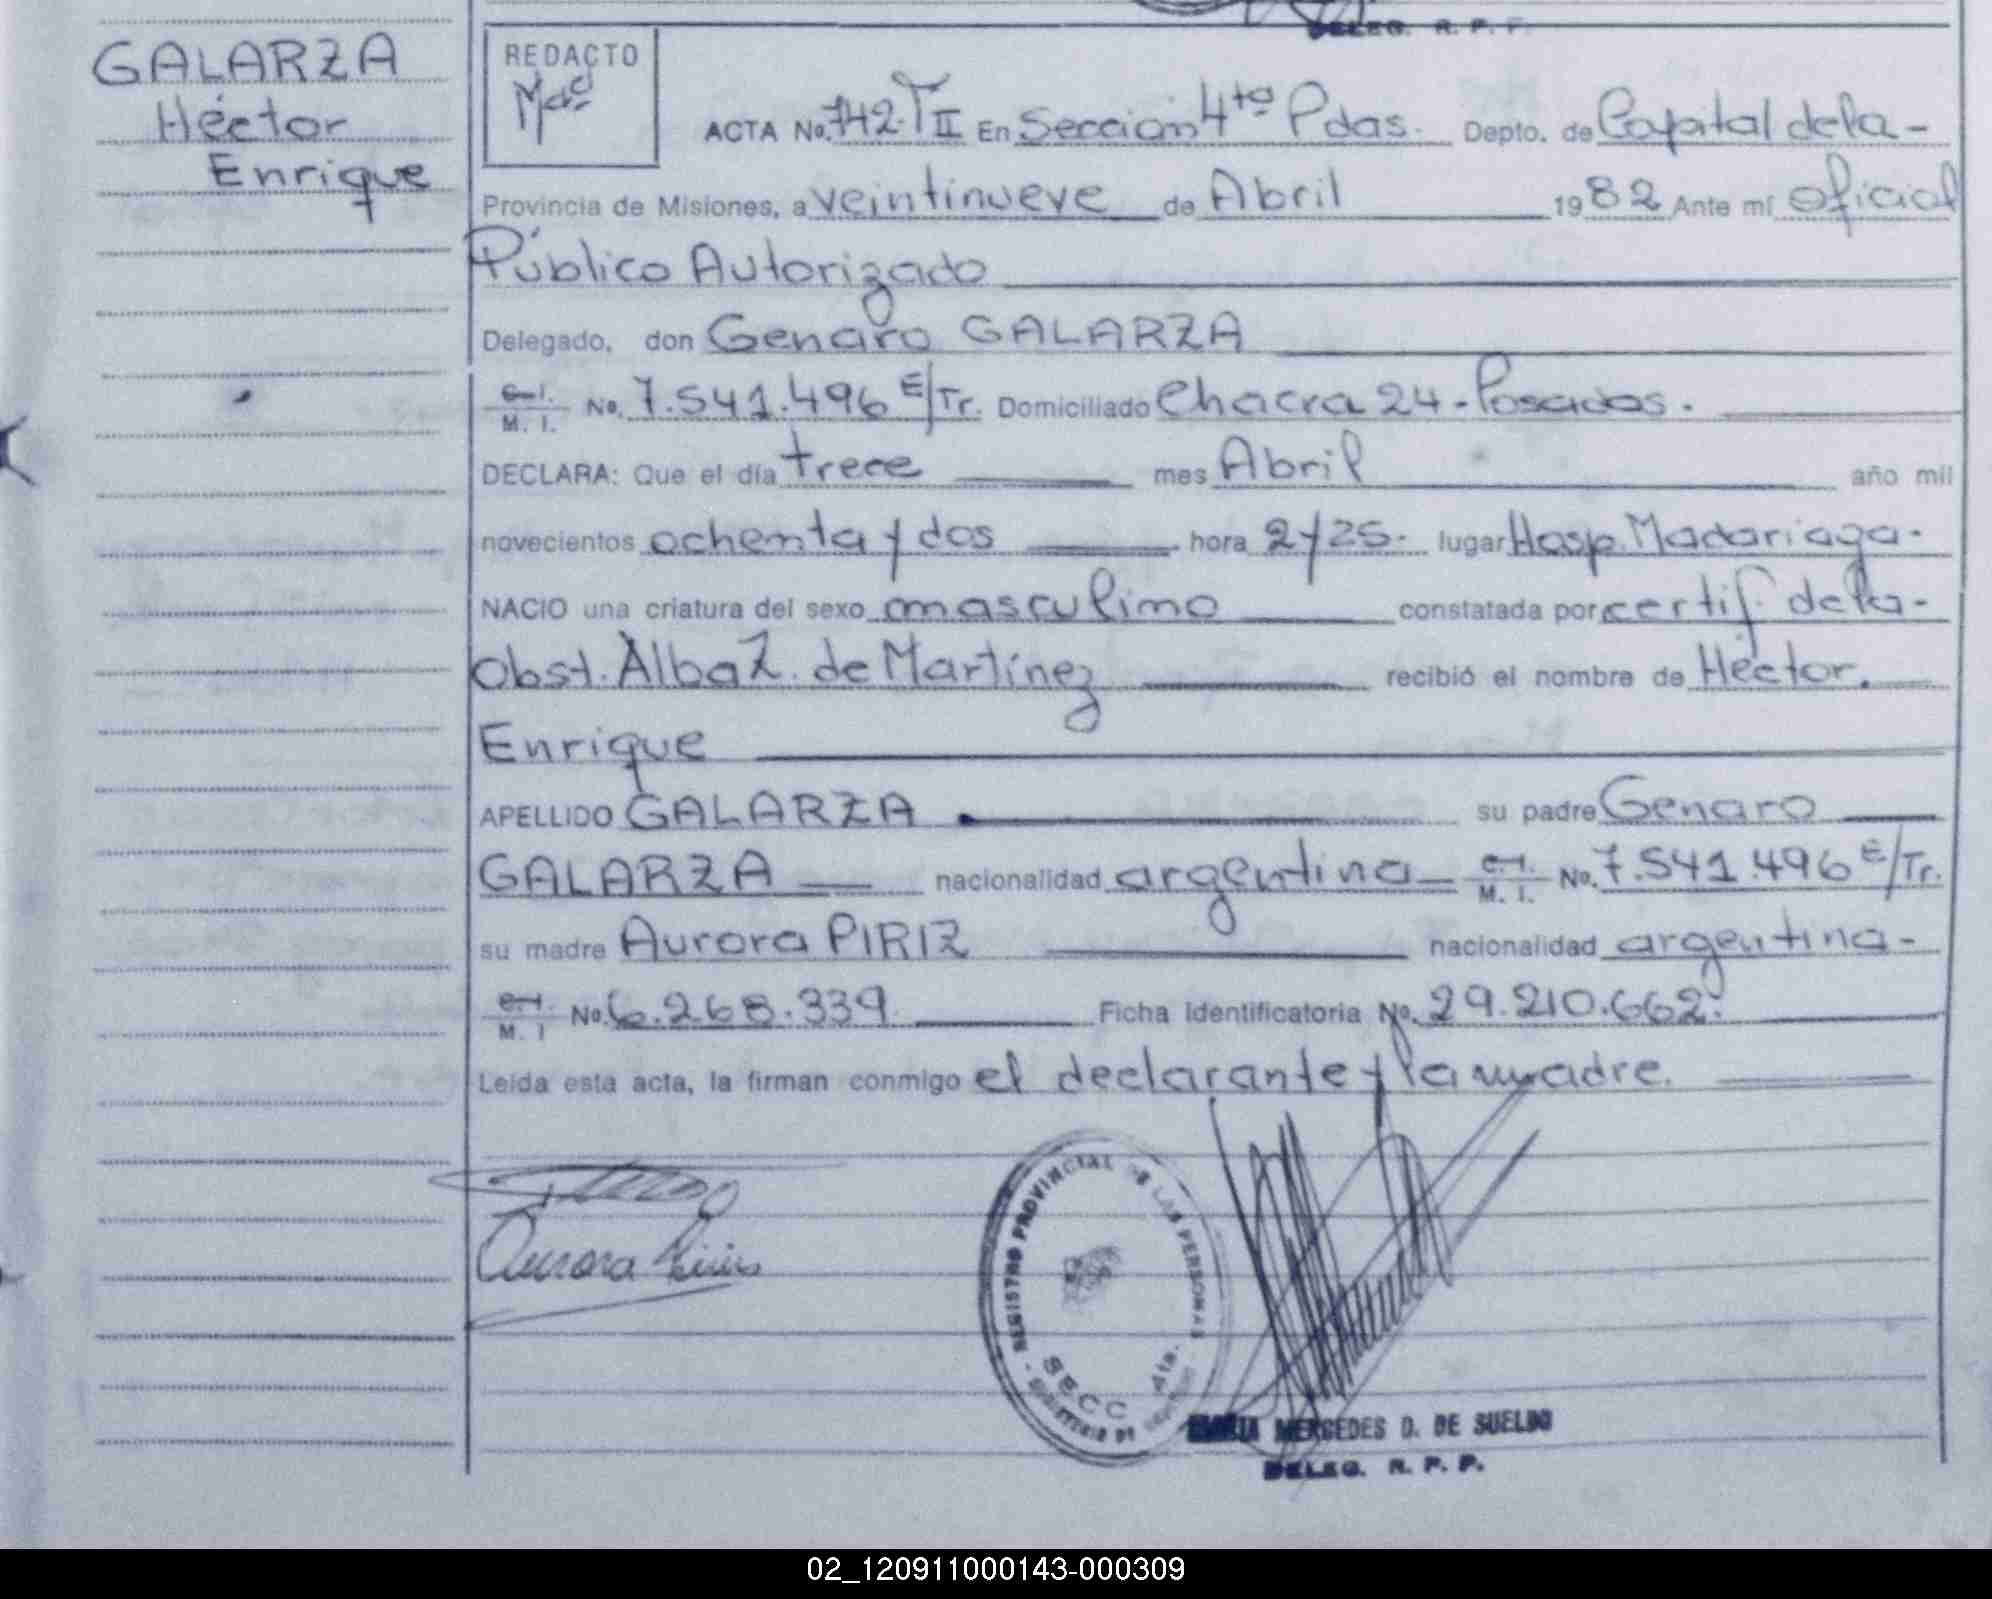 DELEG. R. P. P.
GALARZA
Héctor
Enrique
REDACTO
ACTA No. 742. T II En Sección 4ta Pdas. Depto. de Capital de la -
Provincia de Misiones, a veintinueve de Abril 1982 Ante mí oficial
Público Autorizado
Delegado, don Genaro GALARZA
C.I. M. I. No. 7.541.496 E/Tr. Domiciliado Chacra 24 - Posadas.
DECLARA: Que el día trece mes Abril año mil
novecientos ochenta y dos hora 2 y 25. lugar Hosp. Madariaga.
NACIO una criatura del sexo masculino constatada por certif. de la -
Obst. Alba Z. de Martínez recibió el nombre de Héctor.
Enrique
APELLIDO GALARZA su padre Genaro
GALARZA nacionalidad argentina - C.I. M. I. No. 7.541.496 E/Tr.
su madre Aurora PIRIZ nacionalidad argentina -
C.I. M. I No. 6.268.339. Ficha Identificatoria No. 29.210.662.
Leida esta acta, la firman conmigo el declarante y la madre.
Aurora Piris
REGISTRO PROVINCIAL DE LAS PERSONAS
SECC 4ta.
MERCEDES D. DE SUELDO
DELEG. R. P. P.
02_120911000143-000309